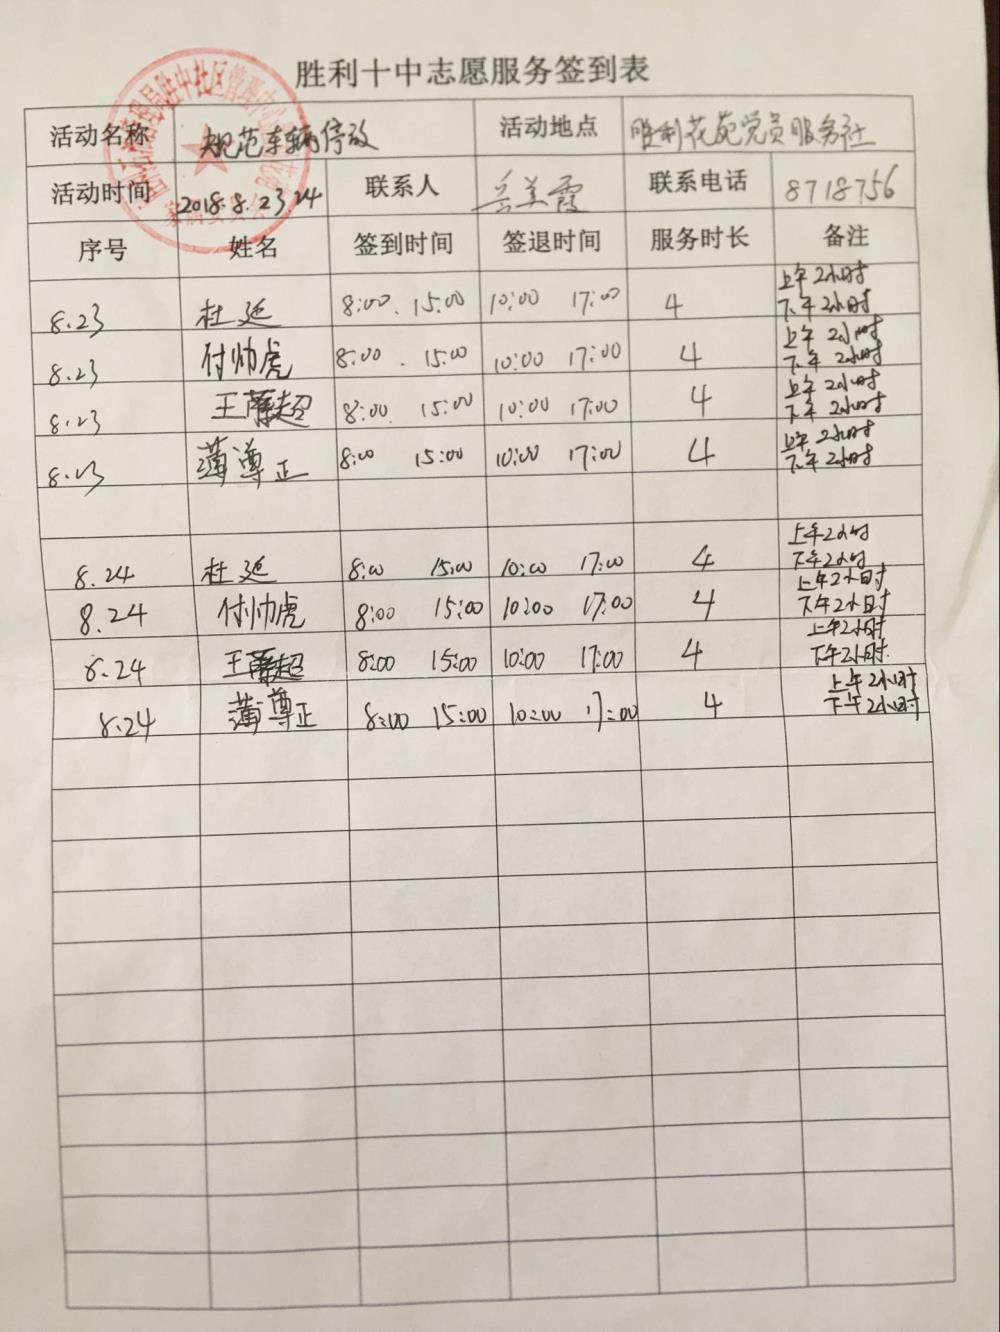 胜利十中志愿服务签到表
活动名称 规范车辆停放 活动地点 胜利花苑党员服务社
活动时间 2018.8.23 24 联系人 美霞 联系电话 8718756
序号 姓名 签到时间 签退时间 服务时长 备注
8.23 杜延 8:00. 15:00 10:00 17:00 4 上午2小时
下午2小时
8.23 付帅虎 8:00 . 15:00 10:00 17:00 4 上午2小时
下午2小时
8.23 王 超 8:00 15:00 10:00 17:00 4 上午2小时
下午2小时
8.23 蒲尊正 8:00 15:00 10:00 17:00 4 上午2小时
下午2小时
8.24 杜延 8:00 15:00 10:00 17:00 4 上午2小时
下午2小时
8.24 付帅虎 8:00 15:00 10:00 17:00 4 上午2小时
下午2小时
8.24 王 超 8:00 15:00 10:00 17:00 4 上午2小时
下午2小时.
8.24 蒲尊正 8:00 15:00 10:00 17:00 4 上午2小时
下午2小时